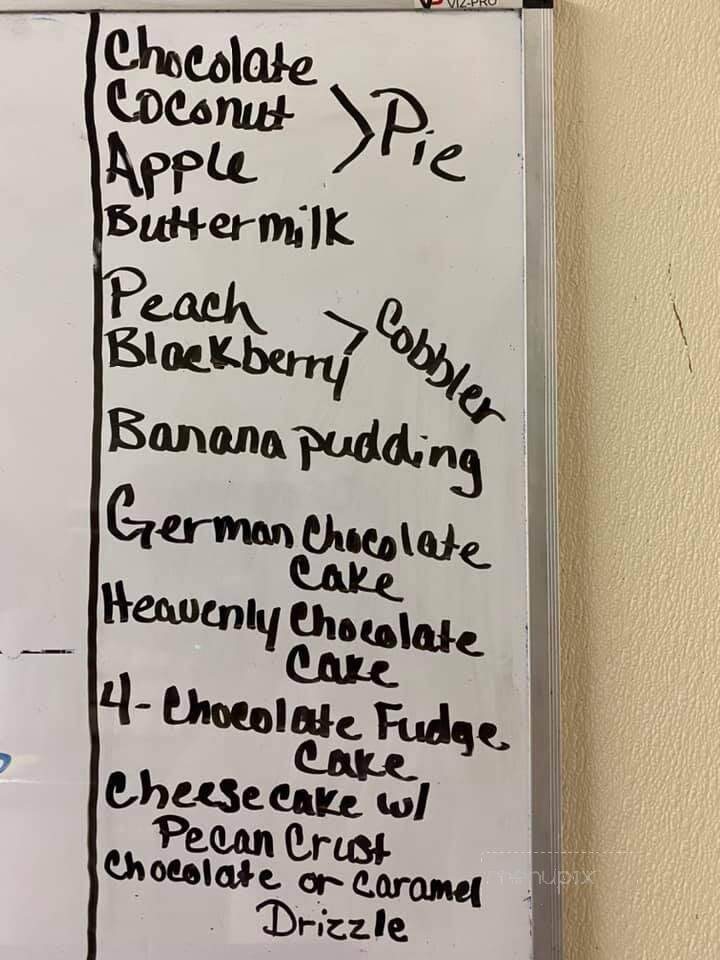 VIZ-PRO
Chocolate
Coconut
Apple
> Pie
Buttermilk
Peach
Blackberry
> Cobbler
Banana pudding
German Chocolate
Cake
Heavenly Chocolate
Cake
4-Chocolate Fudge
Cake
Cheesecake w/
Pecan Crust
Chocolate or Caramel
Drizzle
menupix